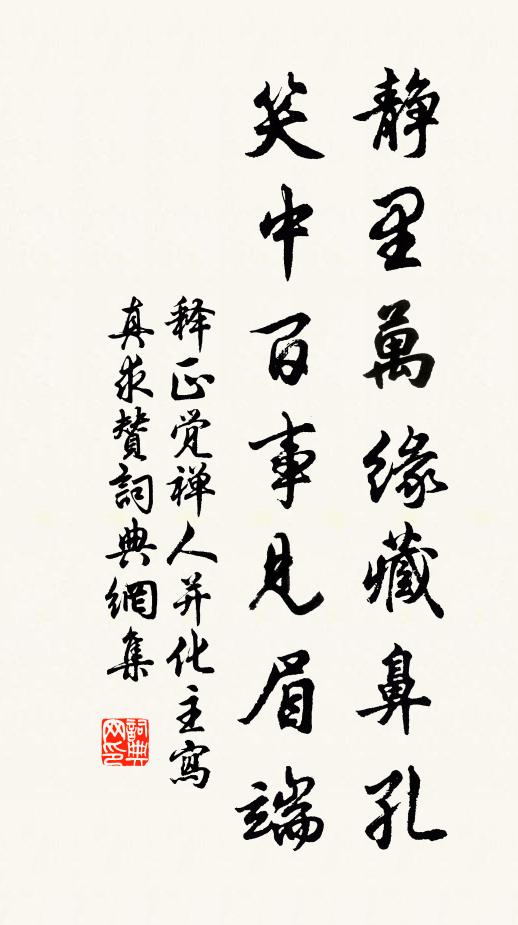 静里萬缘藏鼻孔
笑中百事見眉端
释正觉禅人并化主寫
真求賛詞典網集
詞典網印